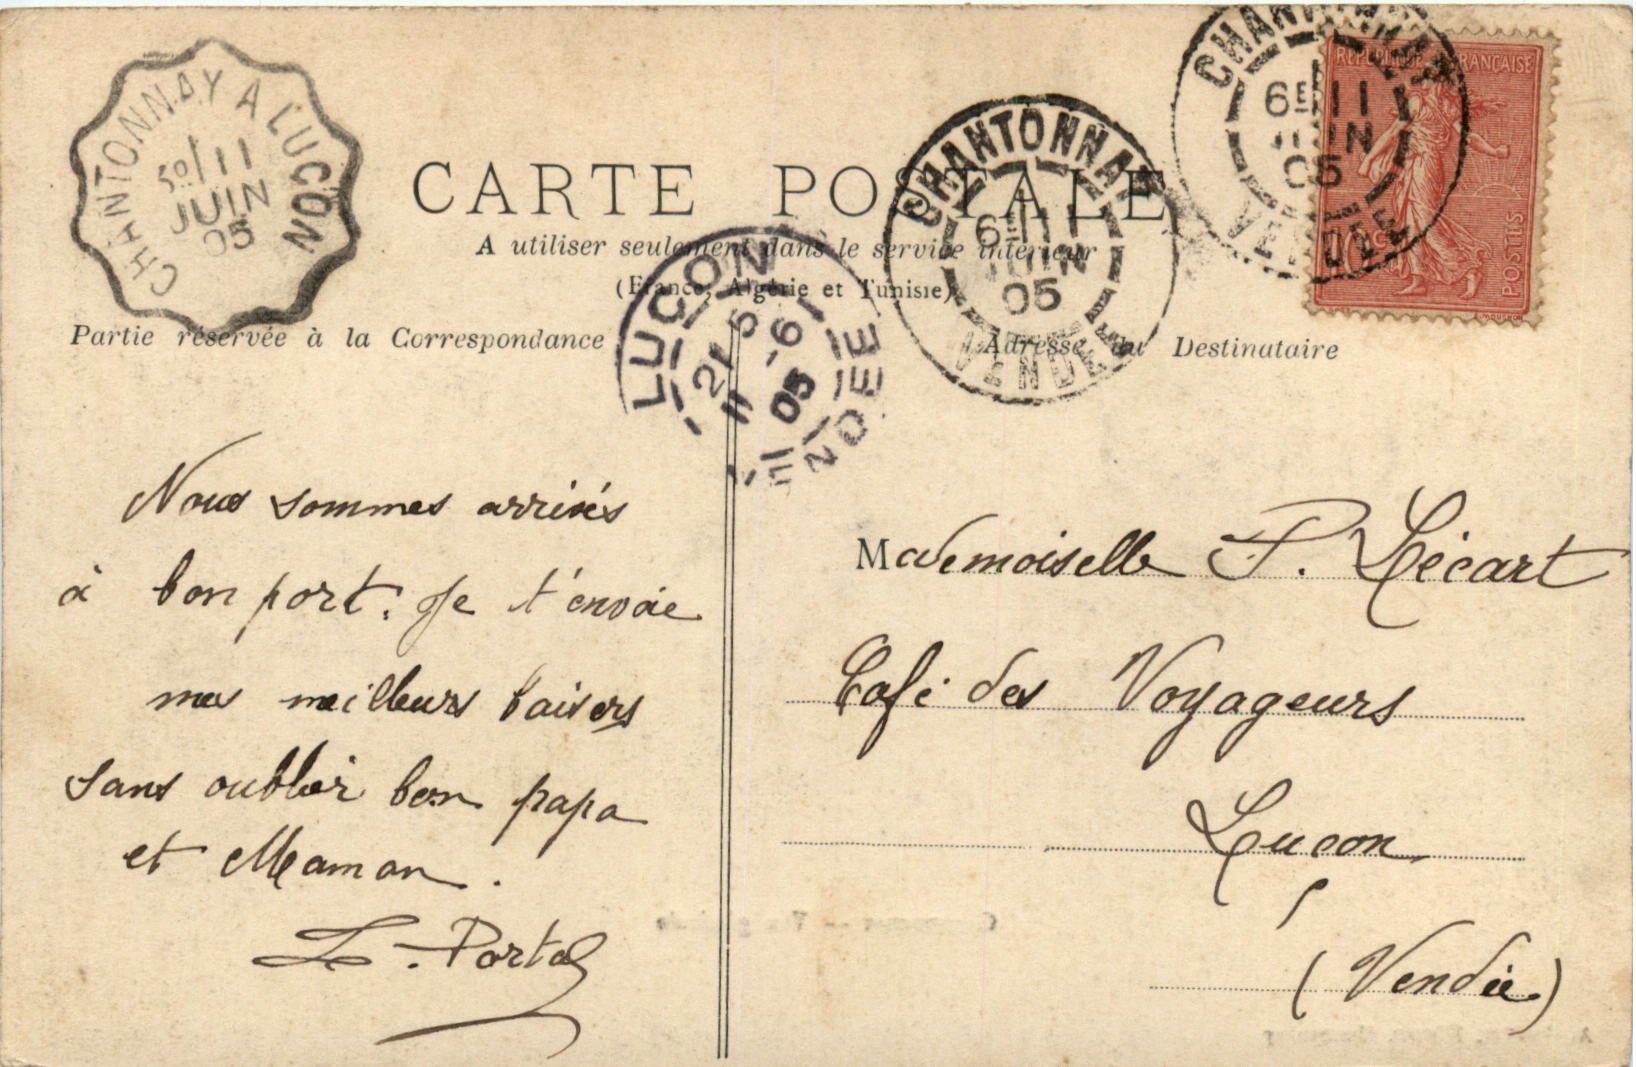 CHANTONNAY A LUÇON
11
JUIN
05
CARTE POSTALE
A utiliser seulement dans le service intérieur
(France, Algérie et Tunisie)
Partie réservée à la Correspondance
Adresse du Destinataire
CHANTONNAY
6E 11
JUIN
05
VENDÉE
CHANTONNAY
6E 11
JUIN
05
VENDÉE
RÉPUBLIQUE FRANÇAISE
POSTES
10
LUÇON
21 5
11 -6
05
VENDÉE
Nous sommes arrivés
à bon port. Je t'envoie
mes meilleurs baisers
sans oublier bon papa
et Maman.
L. Portal
Mademoiselle P. Lécart
Café des Voyageurs
Luçon
(Vendée)